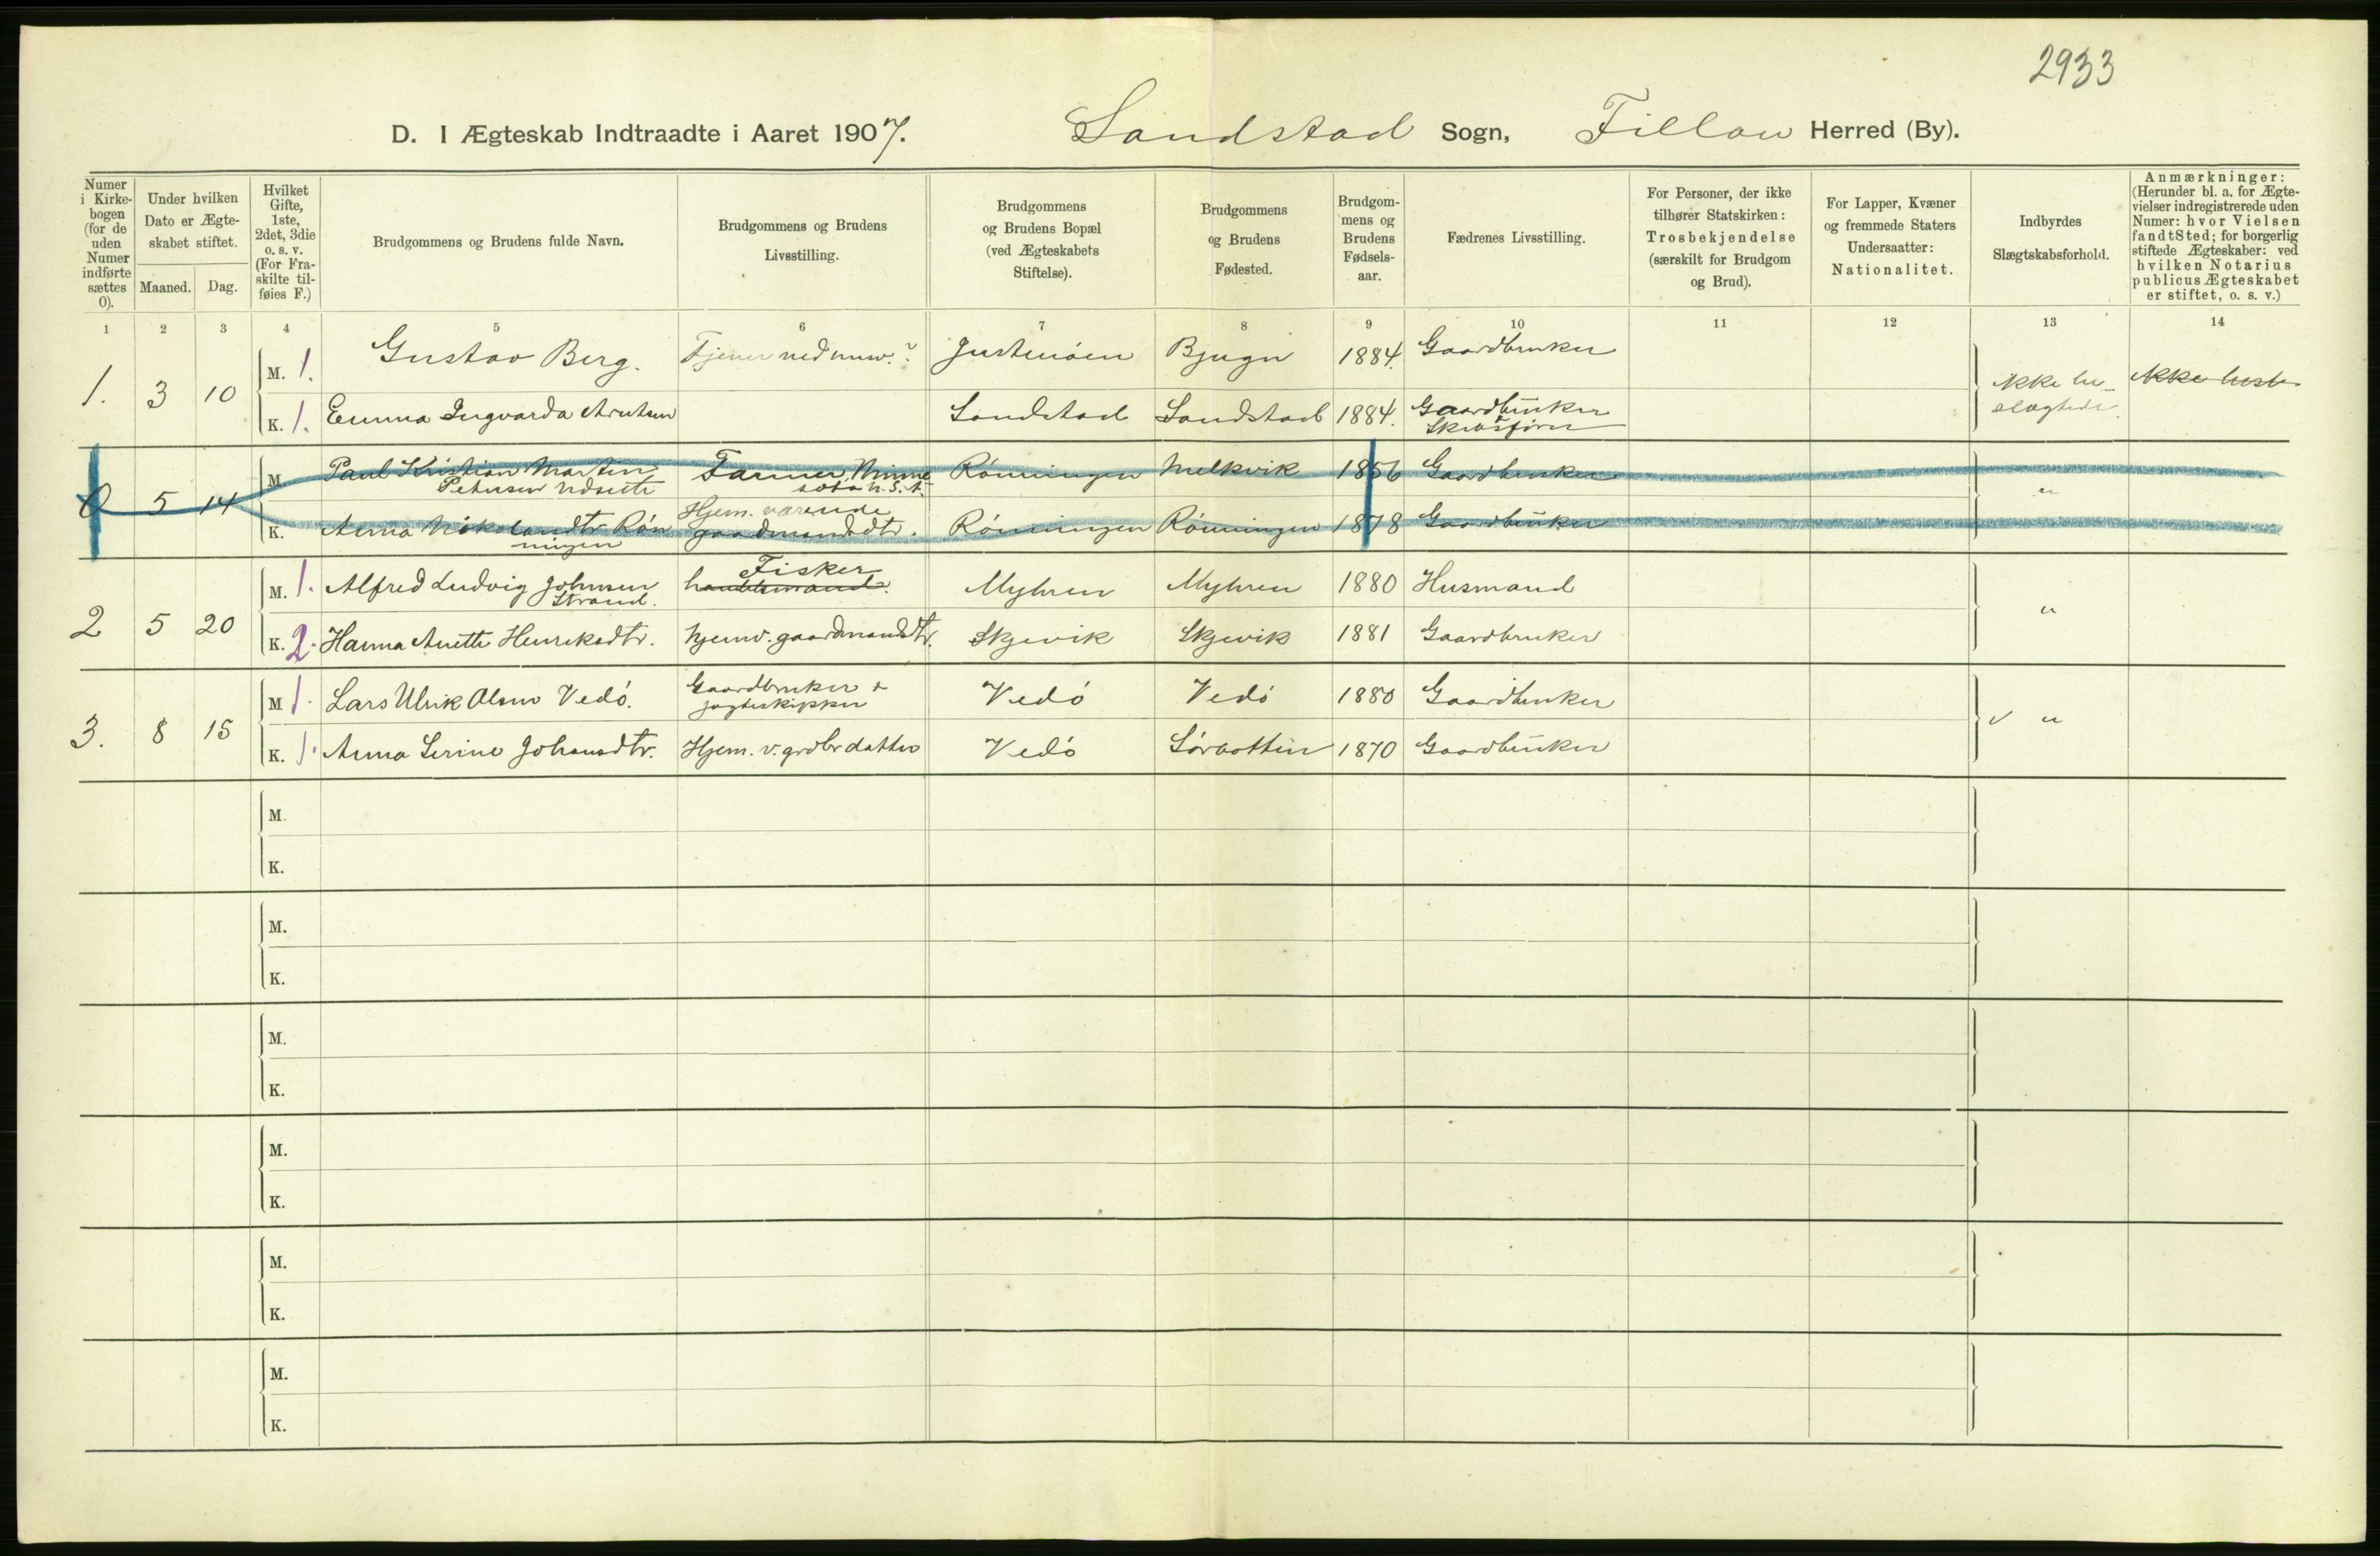 2933
D. I Ægteskab Indtraadte i Aaret 1907. Sandstad Sogn, Fillan Herred (By).
Numer i Kirkebogen (for de uden Numer indførte sættes 0).
Under hvilken Dato er Ægteskabet stiftet.
Maaned. Dag.
Hvilket Gifte, 1ste, 2det, 3die o. s. v. (For Fraskilte tilføies F.)
Brudgommens og Brudens fulde Navn.
Brudgommens og Brudens Livsstilling.
Brudgommens og Brudens Bopæl (ved Ægteskabets Stiftelse).
Brudgommens og Brudens Fødested.
Brudgommens og Brudens Fødselsaar.
Fædrenes Livsstilling.
For Personer, der ikke tilhører Statskirken: Trosbekjendelse (særskilt for Brudgom og Brud).
For Lapper, Kvæner og fremmede Staters Undersaatter: Nationalitet.
Indbyrdes Slægtskabsforhold.
Anmærkninger: (Herunder bl. a. for Ægtevielser indregistrerede uden Numer: hvor Vielsen fandt Sted; for borgerlig stiftede Ægteskaber: ved hvilken Notarius publicus Ægteskabet er stiftet, o. s. v.)
1 2 3 4 5 6 7 8 9 10 11 12 13 14
1. 3 10 M. 1. Gustav Berg. Tjener Bjugn 1884. Gaardbruker
K. 1. Emma Ingvarda Arntsen Sandstad Sandstad 1884. Gaardbruker
ikke be-
slægtede
0 5 14 M. Paul Kristian Martin Farmer, Minne Rönningen Melkvik 1856 Gaardbruker "
Petersen sota U.S.A.
K. Anna Nikolausdtr Rön Hjem. værende Rönningen Rönningen 1878 Gaardbruker
ningen gaardmandsdtr.
2 5 20 M. 1. Alfred Ludvig Johnsen Fisker Myhren Myhren 1880 Husmand "
Strand.
K. 2. Hanna Anette Henriksdtr. hjemv. gaardmandsdtr. Skjevik Skjevik 1881 Gaardbruker
3. 8 15 M 1. Lars Ulrik Olsen Vedö. Gaardbruker & Vedö Vedö 1880 Gaardbruker "
jagteskipper
K. 1. Anna Serine Johansdtr. Hjem. v. grdbr datter Vedö 1870 Gaardbruker
M.
K.
M.
K.
M.
K.
M.
K.
M.
K.
M.
K.